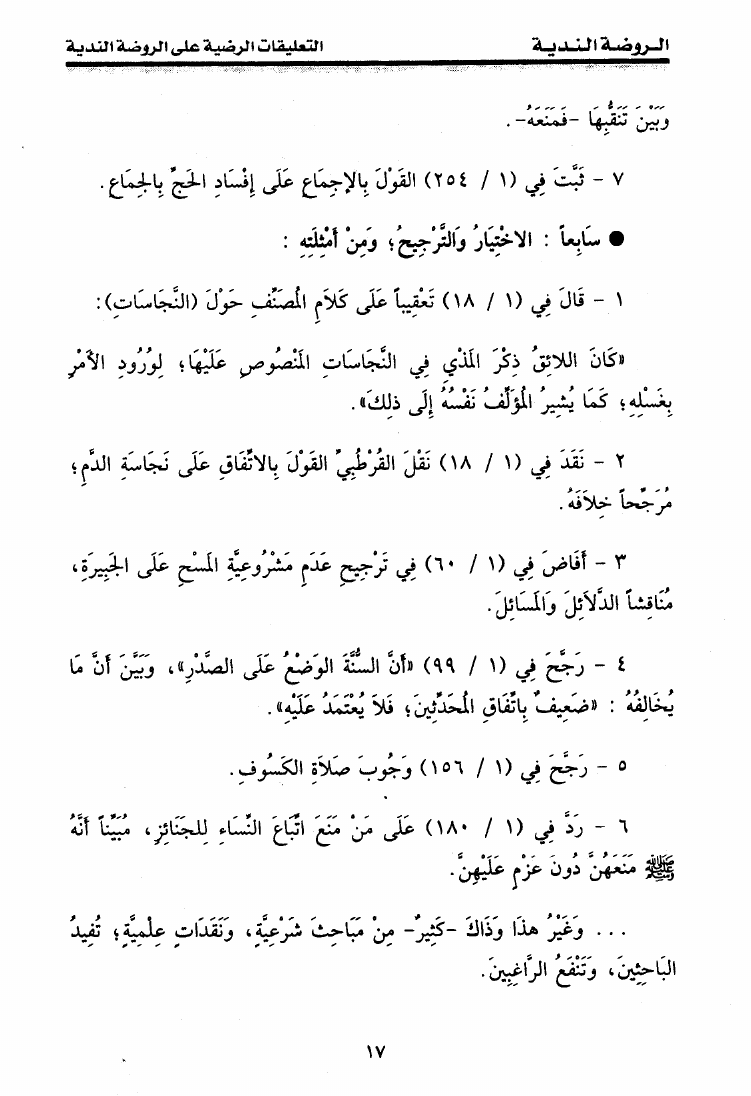 الـروضـة الـنـديـة
التعليقات الرضية على الروضة الندية
وَبَيْنَ تَنَقُّبِهَا -فَمَنَعَهُ- .
٧ - ثَبَّتَ فِي (١ / ٢٥٤) القَوْلَ بِالإجمَاعِ عَلَى إِفْسَادِ الحَجِّ بِالجِمَاعِ .
● سَابِعاً : الاخْتِيَارُ وَالتَّرْجِيحُ؛ وَمِنْ أَمْثِلَتِهِ :
١ - قَالَ فِي (١ / ١٨) تَعْقِيباً عَلَى كَلَامِ المُصَنِّفِ حَوْلَ (النَّجَاسَاتِ):
«كَانَ اللائِقُ ذِكْرَ المَذْيِ فِي النَّجَاسَاتِ المَنْصُوصِ عَلَيْهَا؛ لِوُرُودِ الأَمْرِ
بِغَسْلِهِ؛ كَمَا يُشِيرُ المُؤَلِّفُ نَفْسُهُ إِلَى ذلِكَ».
٢ - نَقَدَ فِي (١ / ١٨) نَقْلَ القُرْطُبِيِّ القَوْلَ بِالاتِّفَاقِ عَلَى نَجَاسَةِ الدَّمِ؛
مُرَجِّحاً خِلاَفَهُ.
٣ - أَفَاضَ فِي (١ / ٦٠) فِي تَرْجِيحِ عَدَمِ مَشْرُوعِيَّةِ المَسْحِ عَلَى الجَبِيرَةِ،
مُنَاقِشاً الدَّلاَئِلَ وَالمَسَائِلَ.
٤ - رَجَّحَ فِي (١ / ٩٩) «أَنَّ السُّنَّةَ الوَضْعُ عَلَى الصَّدْرِ»، وَبَيَّنَ أَنَّ مَا
يُخَالِفُهُ : «ضَعِيفٌ بِاتِّفَاقِ المُحَدِّثِينَ؛ فَلاَ يُعْتَمَدُ عَلَيْهِ».
٥ - رَجَّحَ فِي (١ / ١٥٦) وُجُوبَ صَلاَةِ الكُسُوفِ.
٦ - رَدَّ فِي (١ / ١٨٠) عَلَى مَنْ مَنَعَ اتِّبَاعَ النِّسَاءِ لِلجَنَائِزِ، مُبَيِّناً أَنَّهُ
ﷺ مَنَعَهُنَّ دُونَ عَزْمٍ عَلَيْهِنَّ.
... وَغَيْرُ هذَا وَذَاكَ -كَثِيرٌ- مِنْ مَبَاحِثَ شَرْعِيَّةٍ، وَنَقَدَاتٍ عِلْمِيَّةٍ؛ تُفِيدُ
البَاحِثِينَ، وَتَنْفَعُ الرَّاغِبِينَ.
١٧